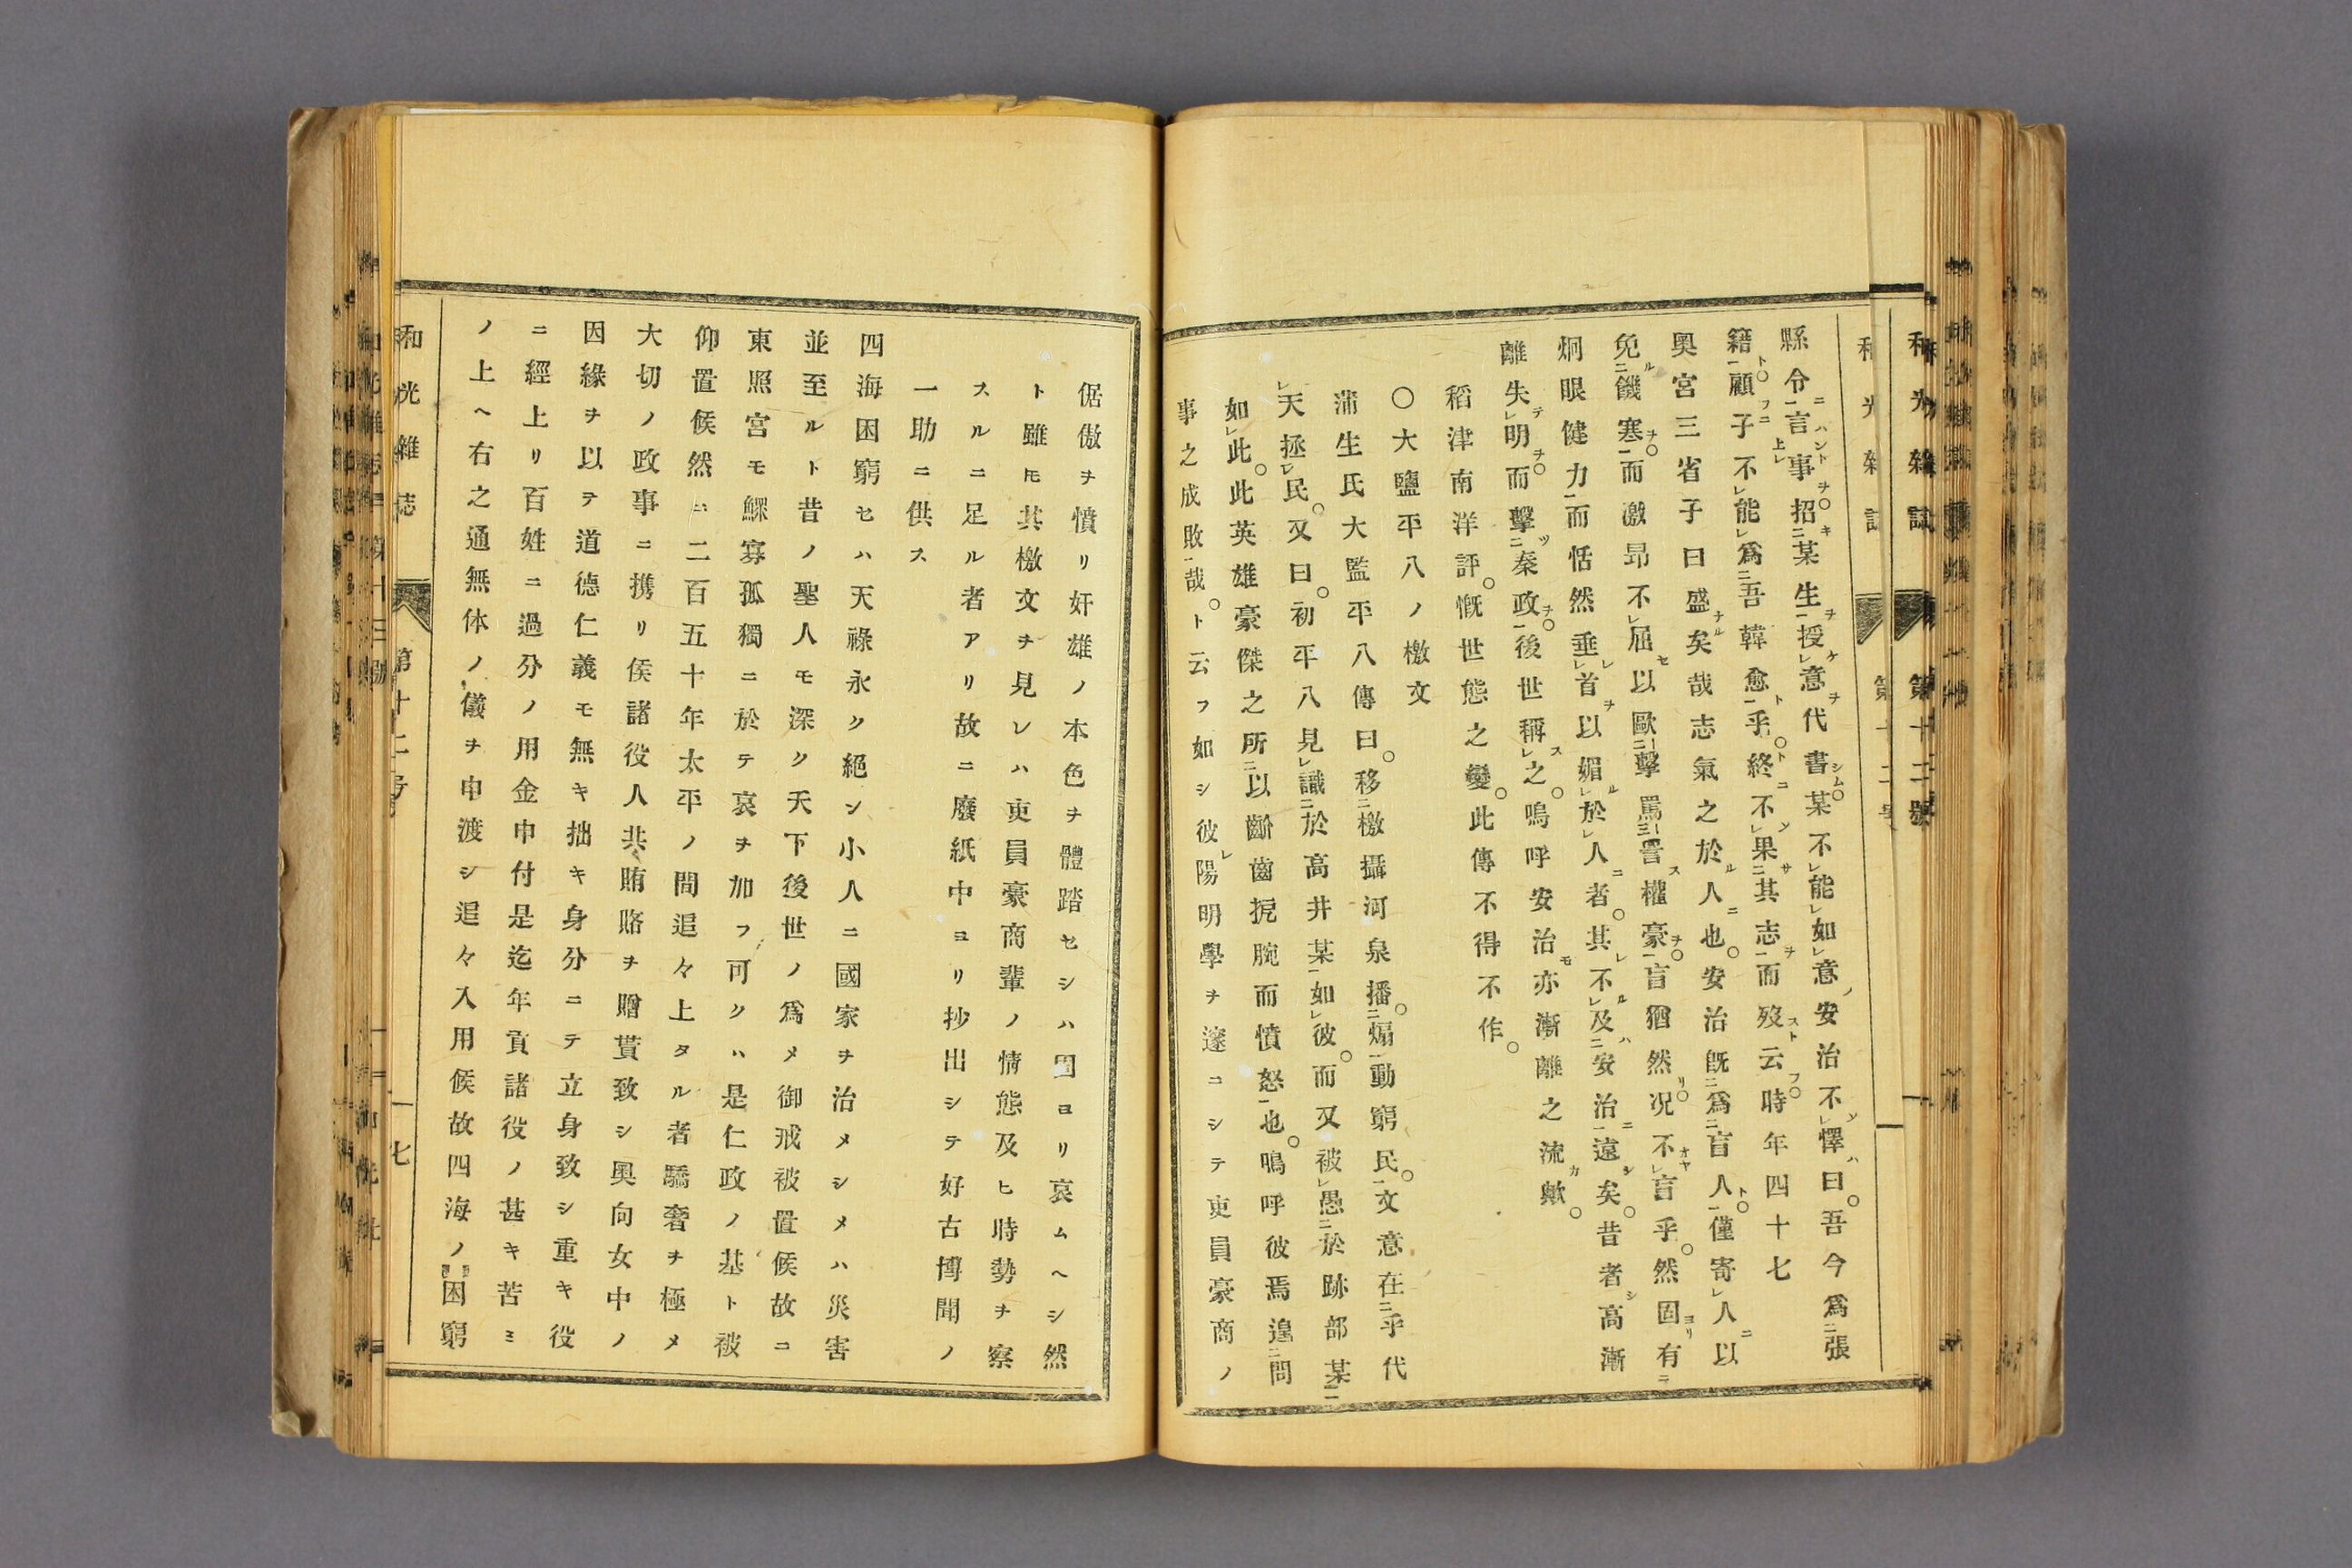 和光雜誌 第十二號
縣令言事招某生授意代書某不能如意安治不懌曰吾今爲張
籍顧子不能爲吾韓愈乎終不果其志而歿云時年四十七
奧宮三省子曰盛矣哉志氣之於人也安治旣爲盲人僅寄人以
免饑寒而激昻不屈以歐擊罵詈權豪盲猶然況不言乎然固有
炯眼健力而恬然垂首以媚於人者其不及安治遠矣昔者高漸
離失明而擊秦政後世稱之嗚呼安治亦漸離之流歟
稻津南洋評慨世態之變此傳不得不作
〇大鹽平八ノ檄文
蒲生氏大監平八傳曰移檄攝河泉播煽動窮民文意在乎代
天拯民又曰初平八見識於高井某如彼而又被愚於跡部某
如此此英雄豪傑之所以齗齒扼腕而憤怒也嗚呼彼焉遑問
事之成敗哉ト云フ如シ彼陽明學ヲ邃ニシテ吏員豪商ノ
倨傲ヲ憤リ奸雄ノ本色ヲ體踏セシハ固ヨリ哀ムヘシ然
ト雖モ其檄文ヲ見レハ吏員豪商輩ノ情態及ヒ時勢ヲ察
スルニ足ル者アリ故ニ廢紙中ヨリ抄出シテ好古博聞ノ
一助ニ供ス
四海困窮セハ天祿永ク絕ン小人ニ國家ヲ治メシメハ災害
並至ルト昔ノ聖人モ深ク天下後世ノ爲メ御戒被置候故ニ
東照宮モ鰥寡孤獨ニ於テ哀ヲ加フ可クハ是仁政ノ基ト被
仰置候然ニ二百五十年太平ノ間追々上タル者驕奢ヲ極メ
大切ノ政事ニ携リ侯諸役人共賄賂ヲ贈貰致シ奧向女中ノ
因緣ヲ以テ道德仁義モ無キ拙キ身分ニテ立身致シ重キ役
ニ經上リ百姓ニ過分ノ用金申付是迄年貢諸役ノ甚キ苦ミ
ノ上ヘ右之通無体ノ儀ヲ申渡シ追々入用候故四海ノ困窮
和光雜誌 第十二号 一七